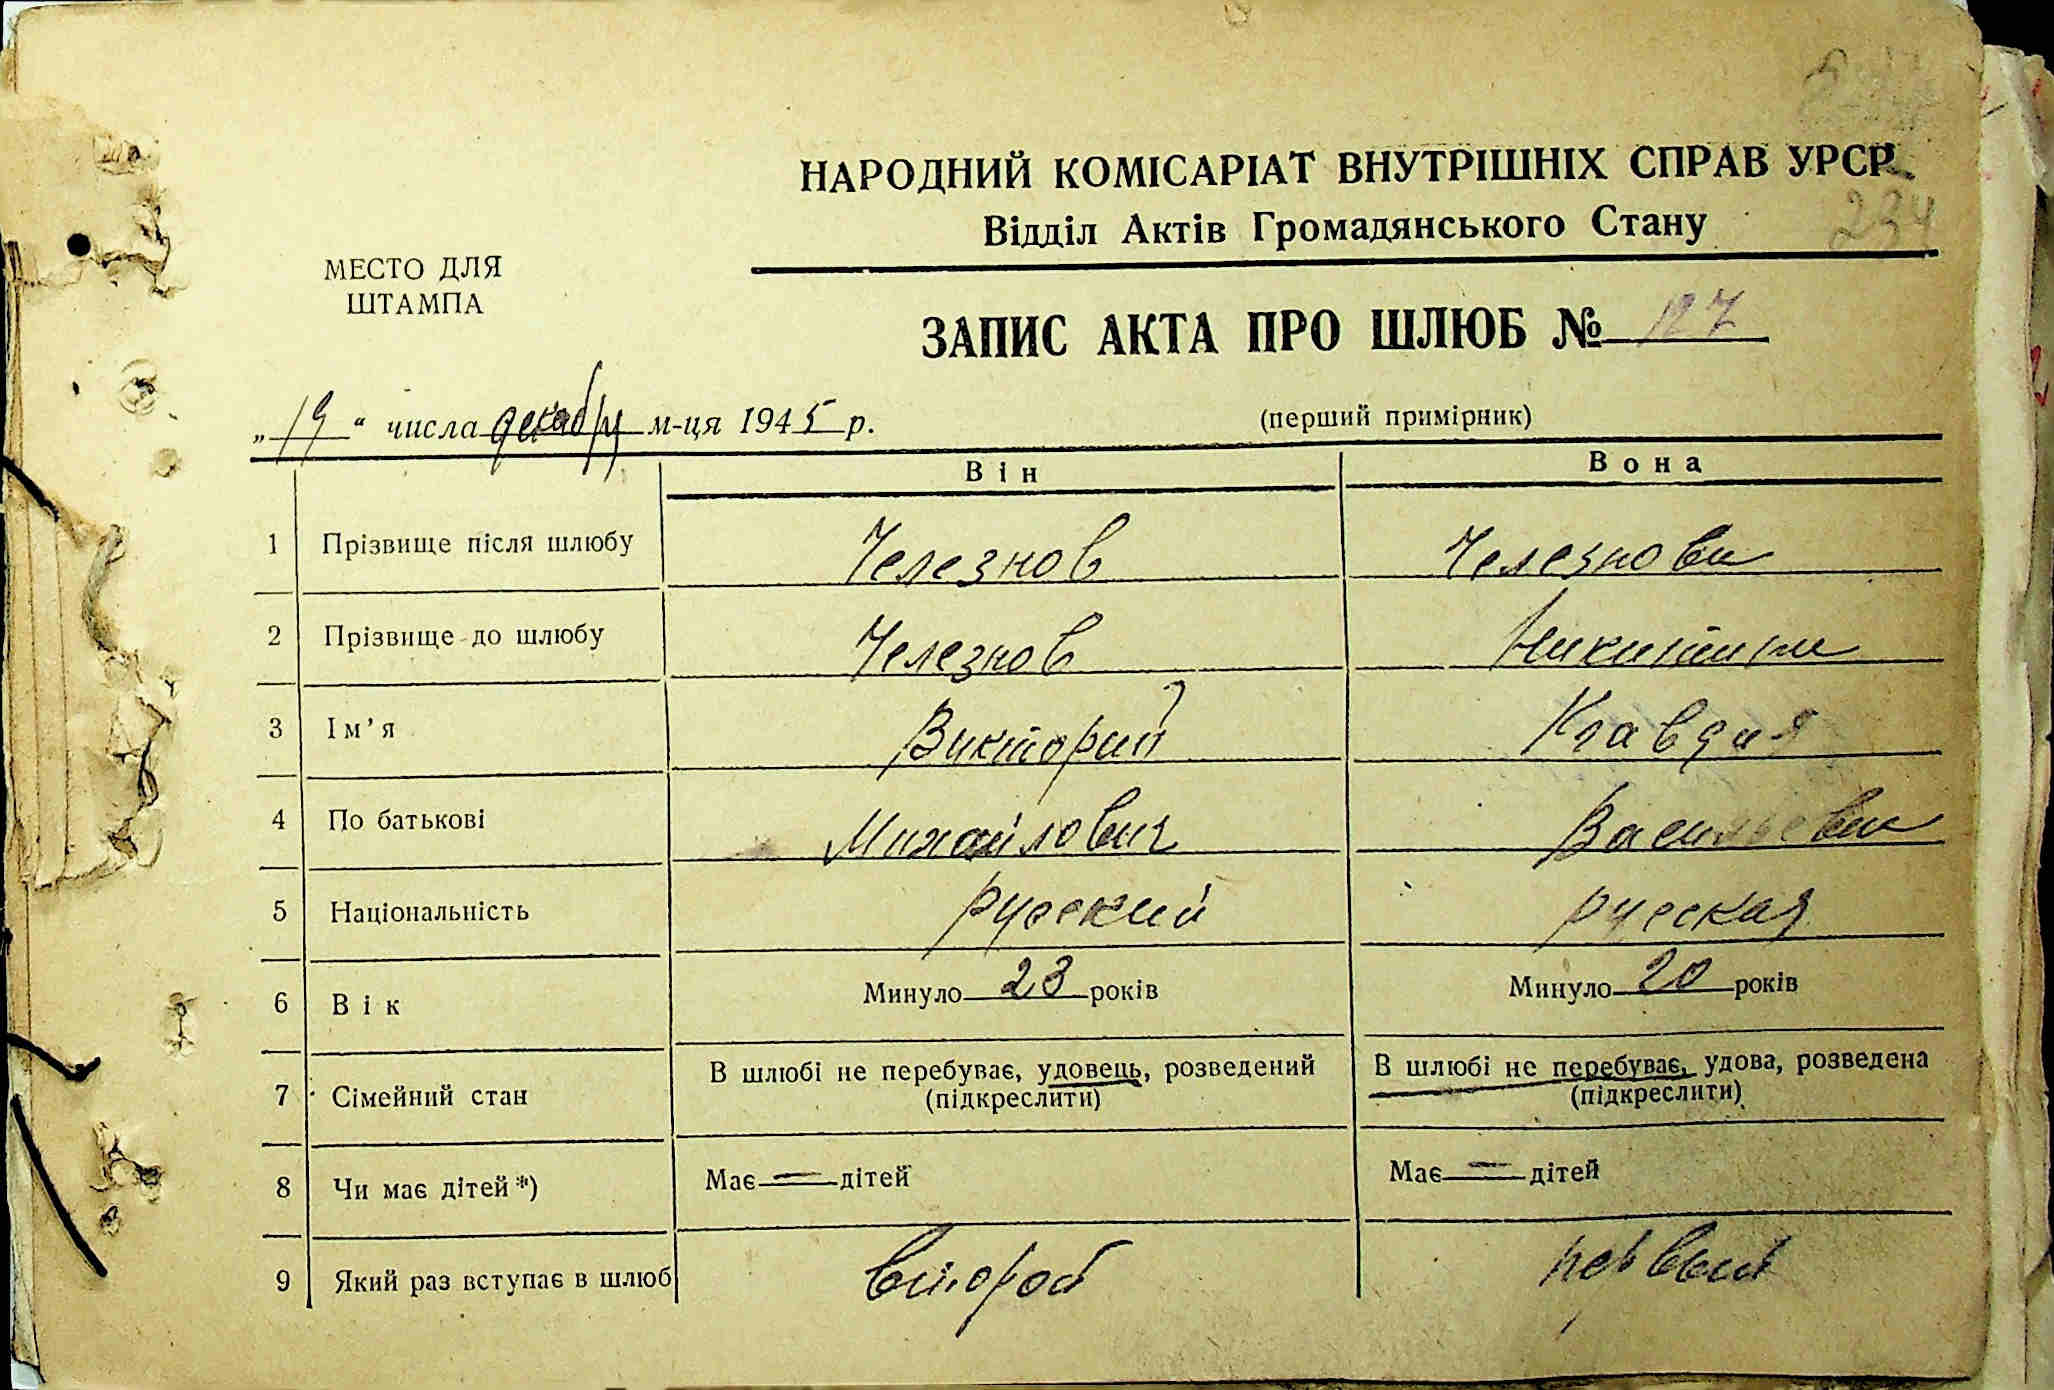 НАРОДНИЙ КОМІСАРІАТ ВНУТРІШНІХ СПРАВ УРСР
Відділ Актів Громадянського Стану
234
МЕСТО ДЛЯ
ШТАМПА
ЗАПИС АКТА ПРО ШЛЮБ № 127
„19“ числа декабря м-ця 1945 р.
(перший примірник)
Він Вона
1 Прізвище після шлюбу Челезнов Челезнова
2 Прізвище до шлюбу Челезнов Никитина
3 Ім’я Викторий Клавдия
4 По батькові Михайлович Васильевна
5 Національність русский русская
6 Вік Минуло 23 років Минуло 20 років
7 Сімейний стан В шлюбі не перебуває, удовець, розведений В шлюбі не перебуває, удова, розведена
(підкреслити) (підкреслити)
8 Чи має дітей *) Має — дітей Має — дітей
9 Який раз вступає в шлюб второй первый